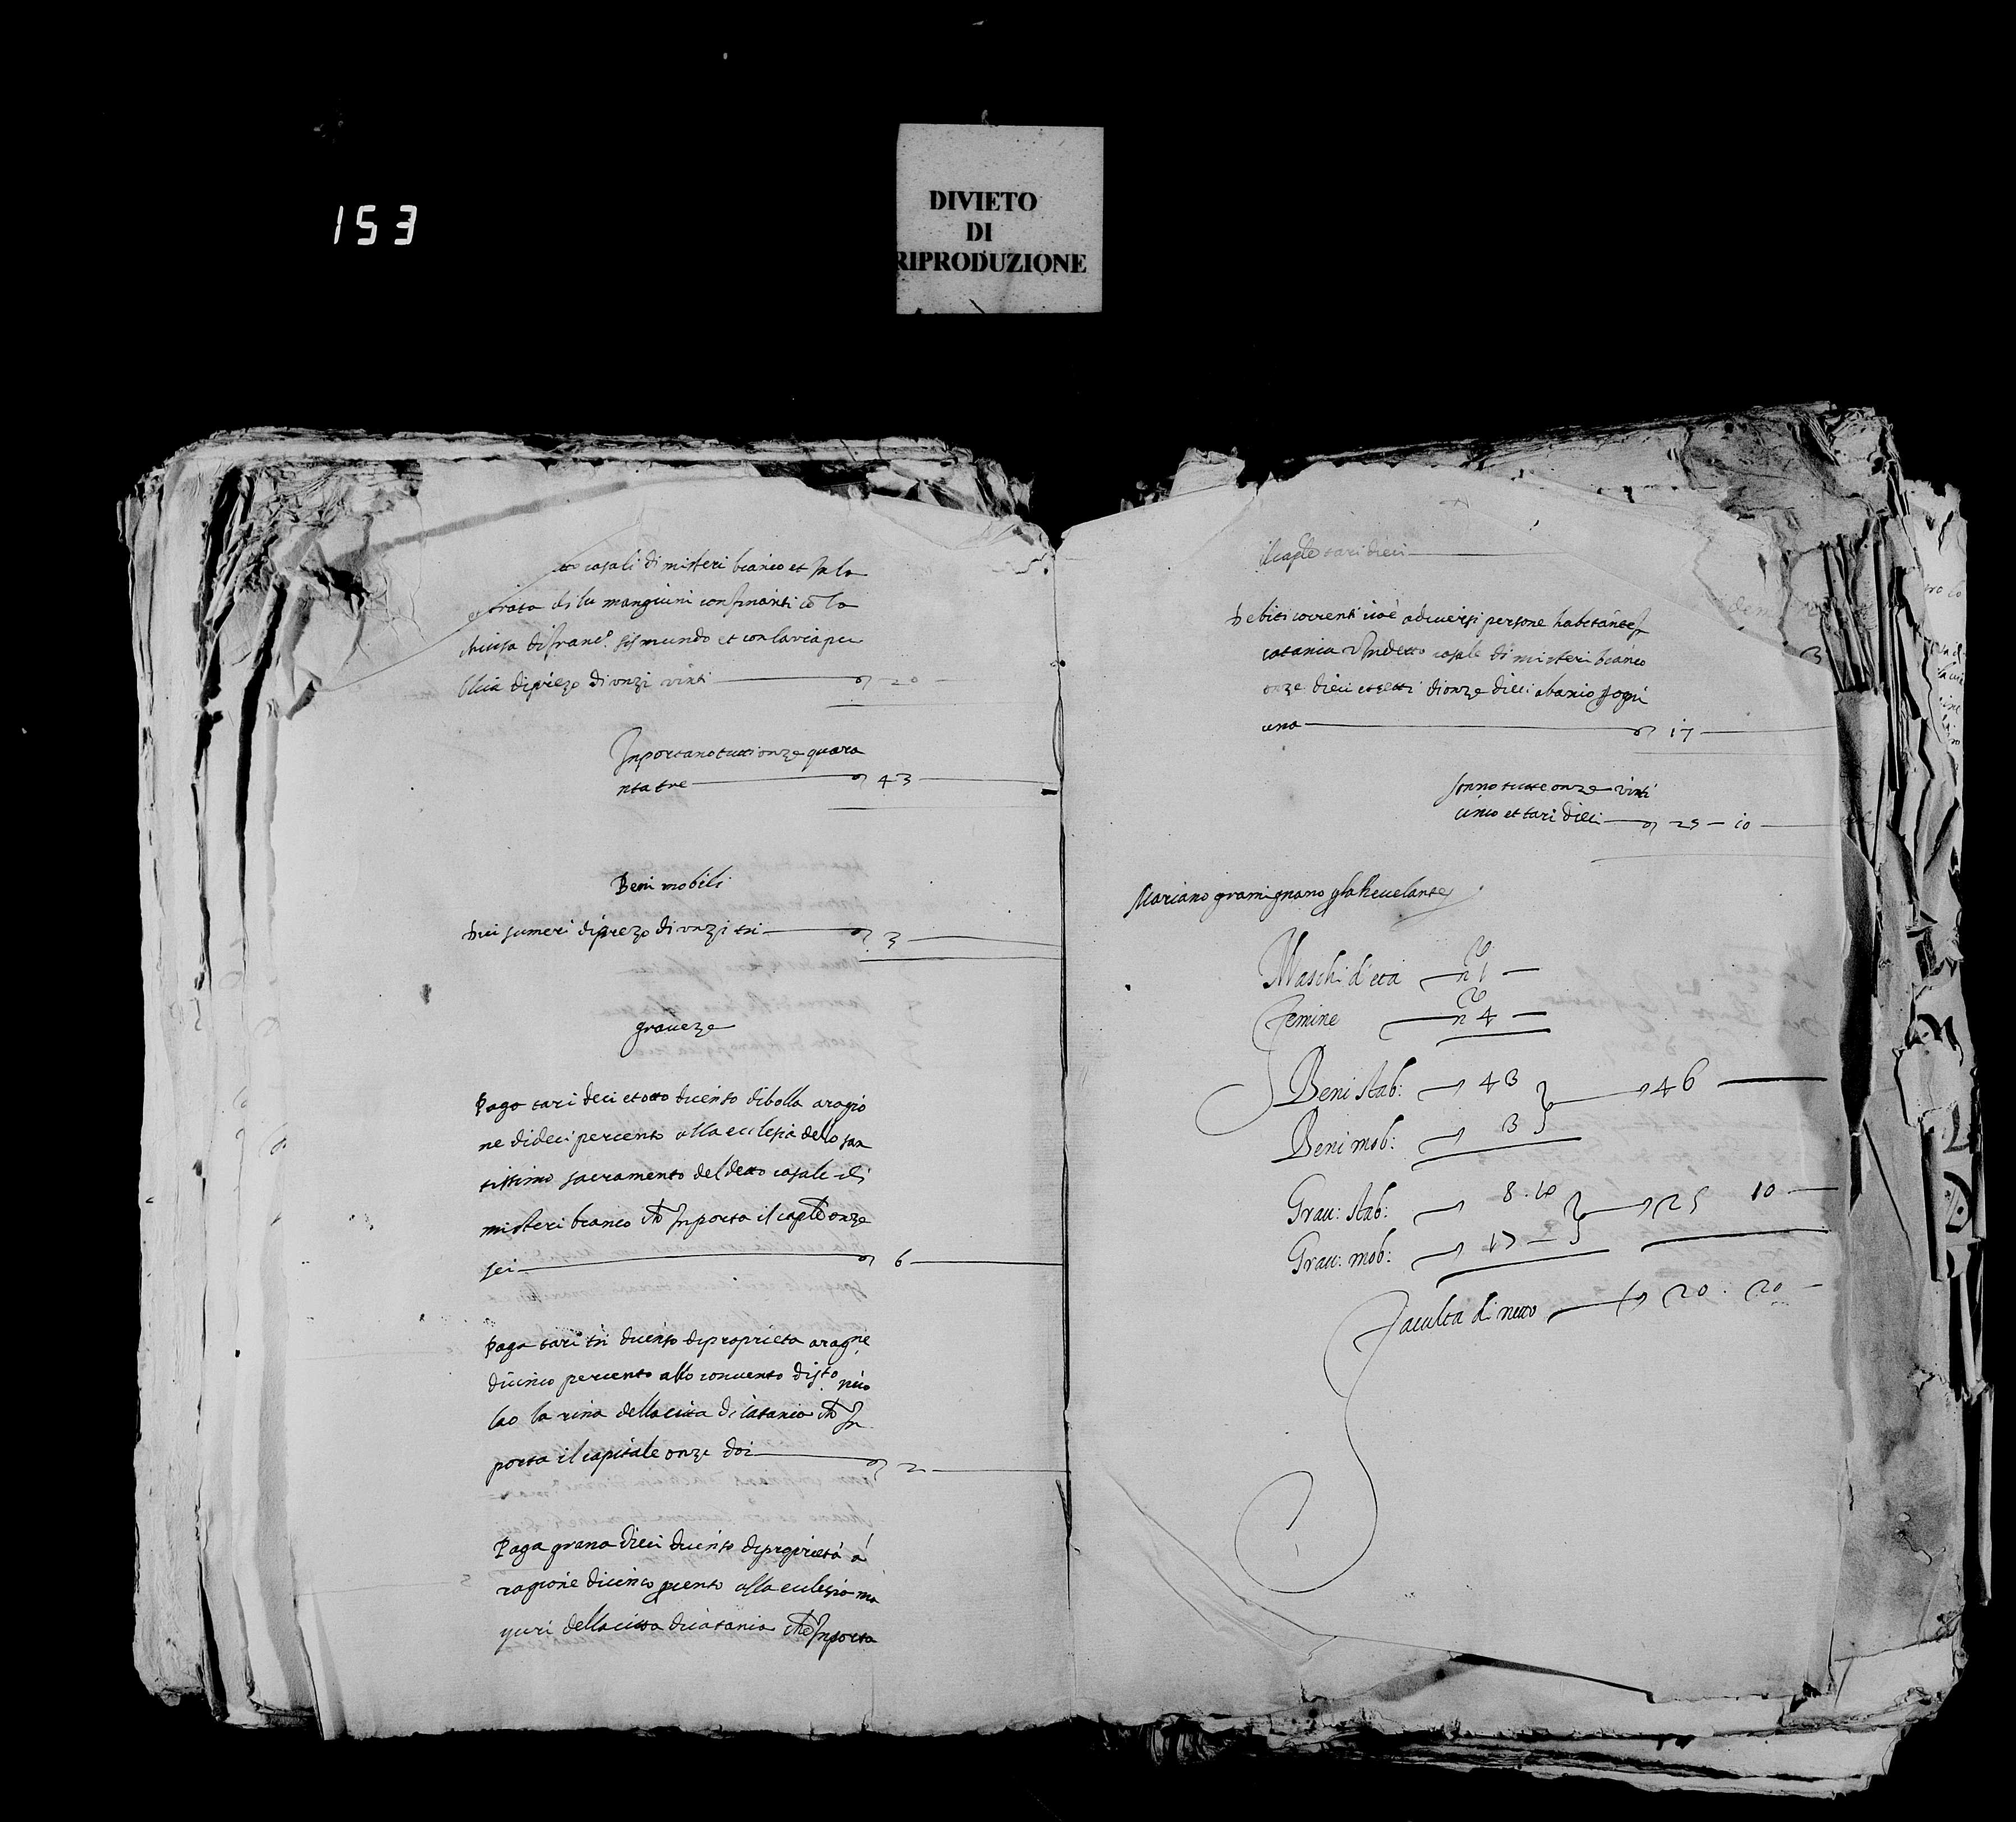 153
DIVIETO
DI
RIPRODUZIONE
casali di misteri bianco et in la
di lu mangiuni confinanti cō la
chiusa di franc.o sismundo et con la via pu
blica di prezo di unzi vinti 20
Inportano tutti onze quara
nta tre 43
Beni mobili
Dui sumeri di prezo di unzi tri 3
graveze
Pago tari deci et otto ducento di bolla a ragio
ne di deci per cento alla ecclesia dello san
tissimo sacramento del detto casale di
misteri bianco che Inporta il caple onze
sei 6
Paga tari tri ducento di proprieta a ragne
di cinco per cento allo convento di sto nico
lao la rina della citta di catania che In
porta il capitale onze doi 2
Paga grana dieci ducento di proprietà á
ragione di cinco per cento alla ecclesia ma
yuri della citta di catania che Inporta
il caple tari dieci
Debiti correnti cioè a diversi persone habitante In
catania et In detto casale di misteri bianco
onze dieci et setti di onze dieci abanio
uno 17
sonno tutte onze vinti
cinco et tari dieci 25 - 10
Mariano gramignano Revelante
Maschi d'età no 1
Femine no 4
Beni stab: 43 46
Beni mob: 3
Grav: stab: 8.10 25 10
Grav: mob: 17
Faculta di netto 20. 20